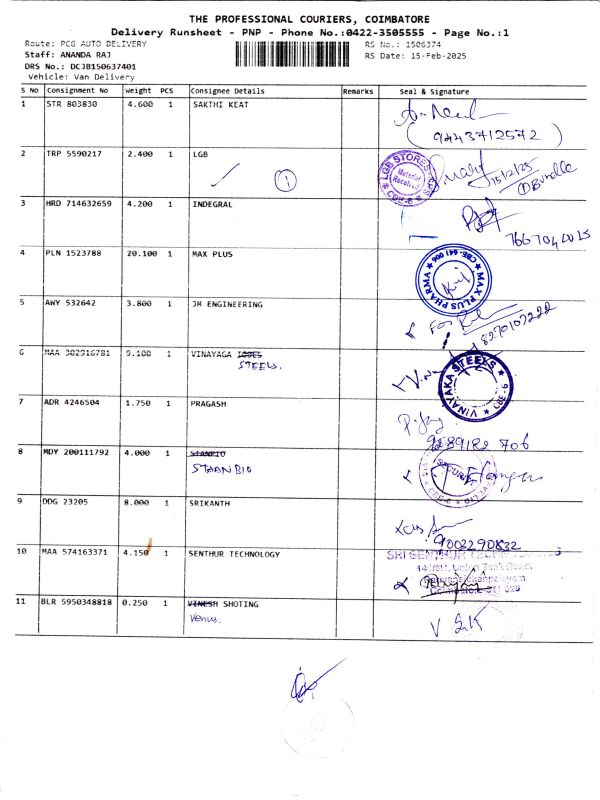 THE PROFESSIONAL COURIERS, COIMBATORE
Delivery Runsheet - PNP - Phone No.:0422-3505555 - Page No.:1
Route: PCG AUTO DELIVERY RS No.: 1506374
Staff: ANANDA RAJ RS Date: 15-Feb-2025
DRS No.: DCJB150637401
Vehicle: Van Delivery
S No Consignment No Weight PCS Consignee Details Remarks Seal & Signature
1 STR 803830 4.600 1 SAKTHI KEAT
(9443712572)
2 TRP 5590217 2.400 1 LGB 1 LGB STORES Material Received CBE-6 15/2/25
① Bundle
3 HRD 714632659 4.200 1 INDEGRAL
4 PLN 1523788 20.100 1 MAX PLUS MAX PLUS PHARMA CBE-641 006
5 AWY 532642 3.800 1 JM ENGINEERING For
8270107222
6 MAA 302916781 9.100 1 VINAYAGA VINAYAKA STEELS CBE-6
STEELS.
7 ADR 4246504 1.750 1 PRAGASH
8 MDY 200111792 4.000 1 STANBIO SECURITY
STAANBIO
9 DDG 23205 8.000 1 SRIKANTH
9002290832
10 MAA 574163371 4.150 1 SENTHUR TECHNOLOGY SRI SENTHUR
11 BLR 5950348818 0.250 1 VINESH SHOTING
Venus.